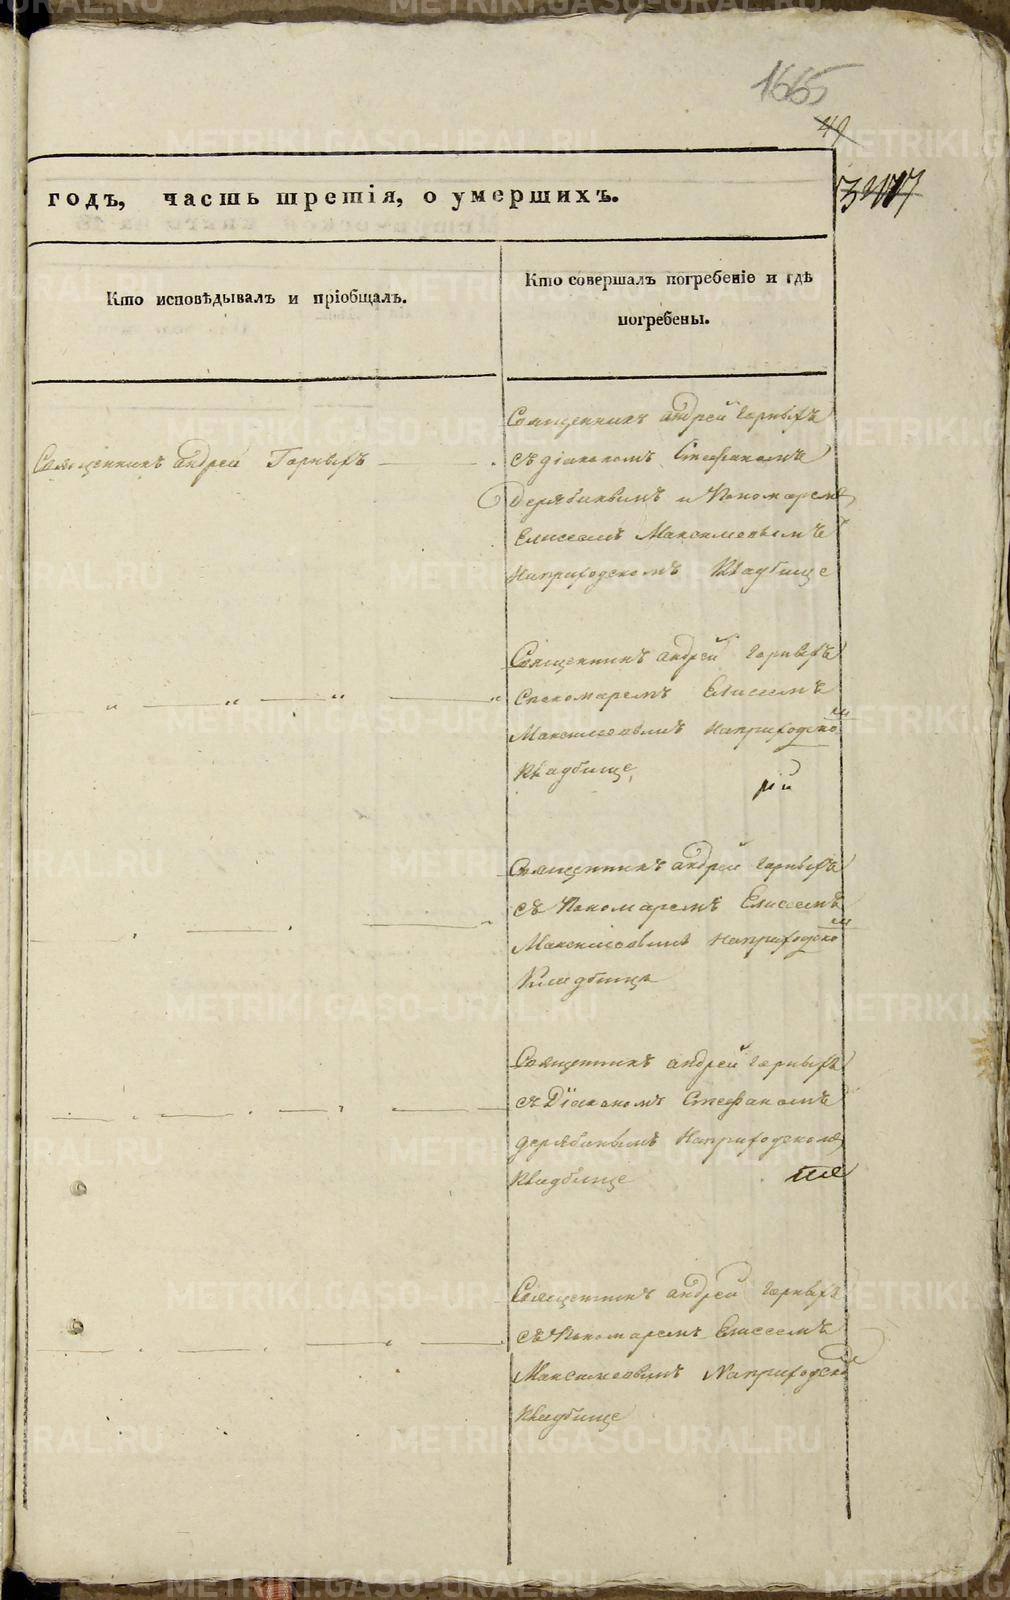 1665
49
3417
годъ, часть третія, о умершихъ.
Кто исповѣдывалъ и пріобщалъ.
Кто совершалъ погребеніе и гдѣ
погребены.
Священникъ андрей Горныхъ
Священникъ андрей Горныхъ
съ діакономъ Стефаномъ
Дерябинымъ и Пономаремъ
Елисеемъ Максимовымъ
Наприходскомъ Кладбище
Священникъ андрей Горныхъ
Спономаремъ Елисеемъ
Максимовымъ Наприходскомъ
Кладбище
Священникъ андрей Горныхъ
съ Пономаремъ Елисеемъ
Максимовымъ Наприходскомъ
Кладбище
Священникъ андрей Горныхъ
съ Діакономъ Стефаномъ
дерябинымъ Наприходскомъ
Кладбище
Священникъ андрей Горныхъ
съ Пономаремъ Елисеемъ
Максимовымъ Наприходском
Кладбище
METRIKI.GASO-URAL.RU